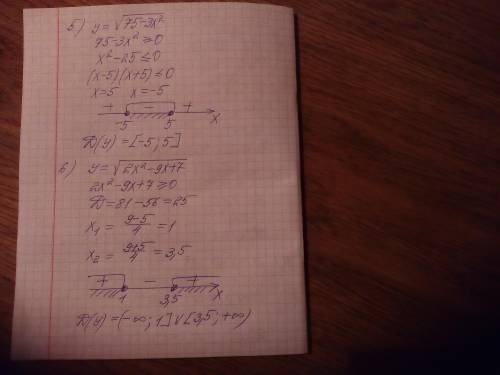 5) y = √75-3x²
75-3x² ≥ 0
x²-25 ≤ 0
(x-5)(x+5) ≤ 0
x=5 x=-5
+ - +
-5 5 x
D(y) = [-5; 5]
6) y = √2x²-9x+7
2x²-9x+7 ≥ 0
D = 81-56 = 25
x₁ = (9-5)/4 = 1
x₂ = (9+5)/4 = 3,5
+ - +
1 3,5 x
D(y) = (-∞; 1] ∨ [3,5; +∞)